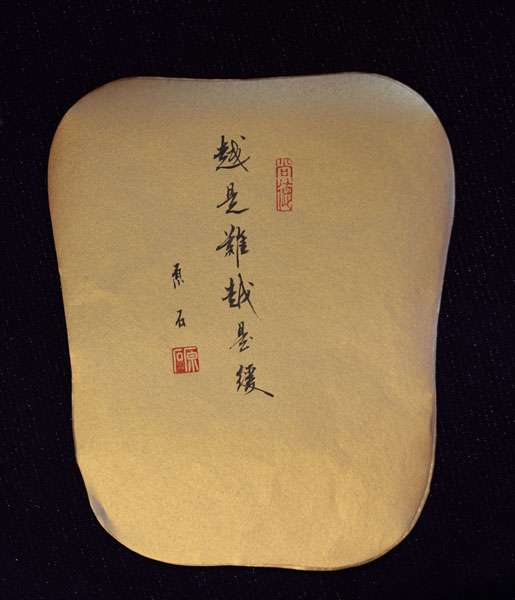 越是難越是緩
原石